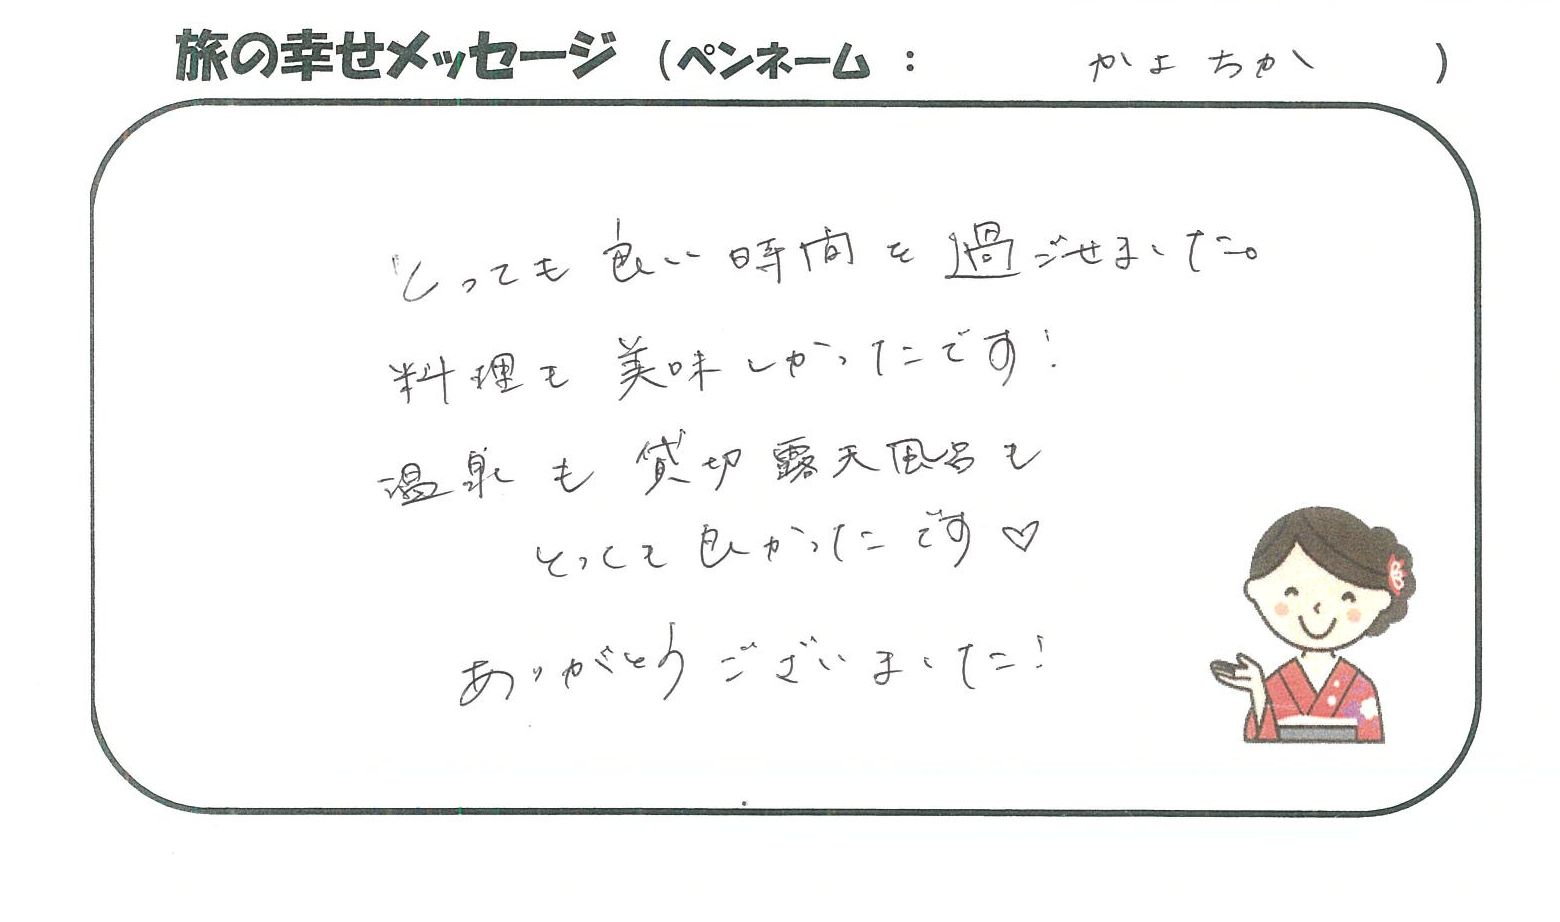 旅の幸せメッセージ (ペンネーム : かよちかい)
とっても良い時間を過ごせました。
料理も美味しかったです!
温泉も貸切露天風呂も
とっても良かったです♡
ありがとうございました!